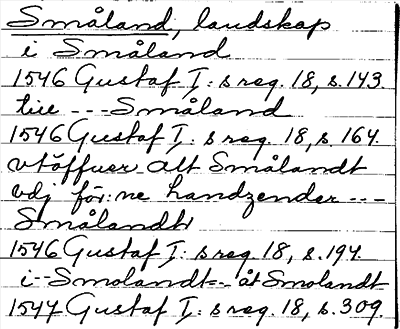 Småland, landskap
i Småland
1546 Gustaf I: s reg. 18, s. 143.
till --- Småland
1546 Gustaf I: s reg. 18, s. 164.
vtöffuer alt Smålandt
vdj för:ne handzender ---
Smålandt
1546 Gustaf I: s reg. 18, s. 194.
i -- Smolandt -- åt Smolandt
1547 Gustaf I: s reg. 18, s. 309.